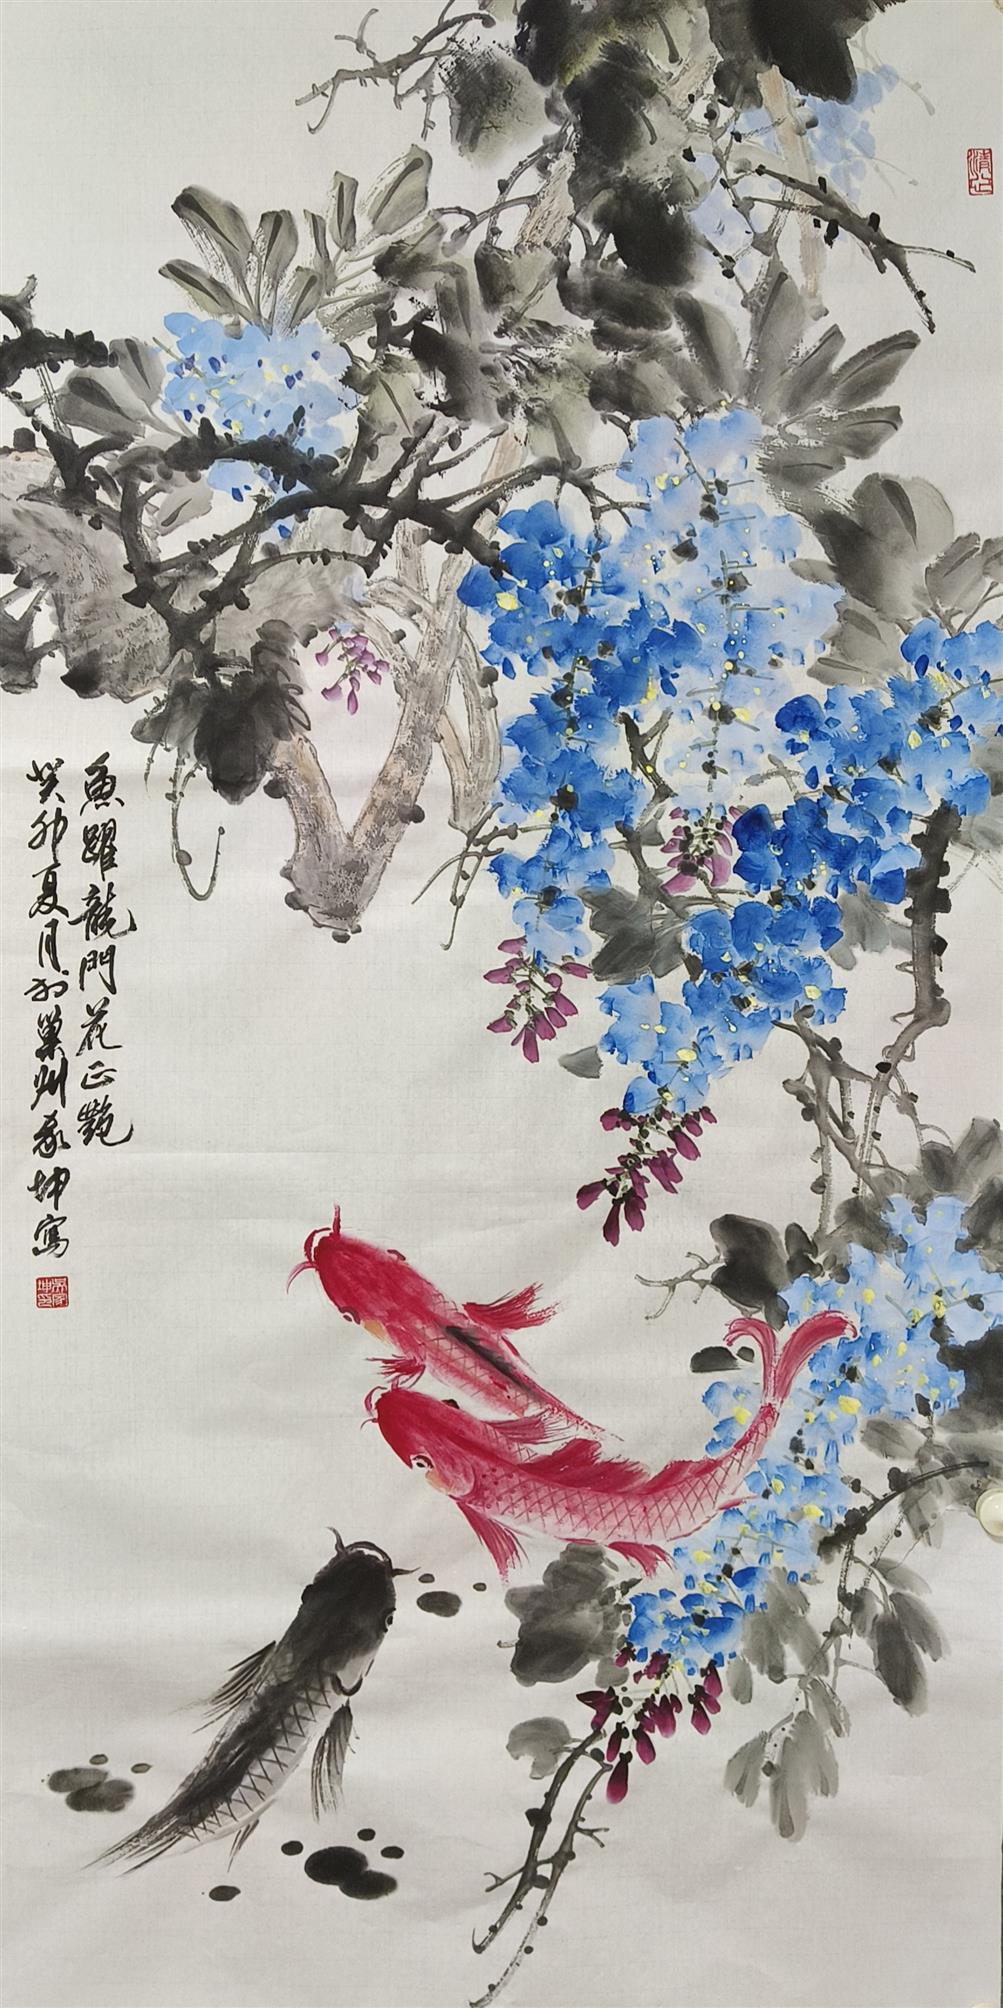 魚躍龍門花正艷
癸卯夏月於巢州家坤寫